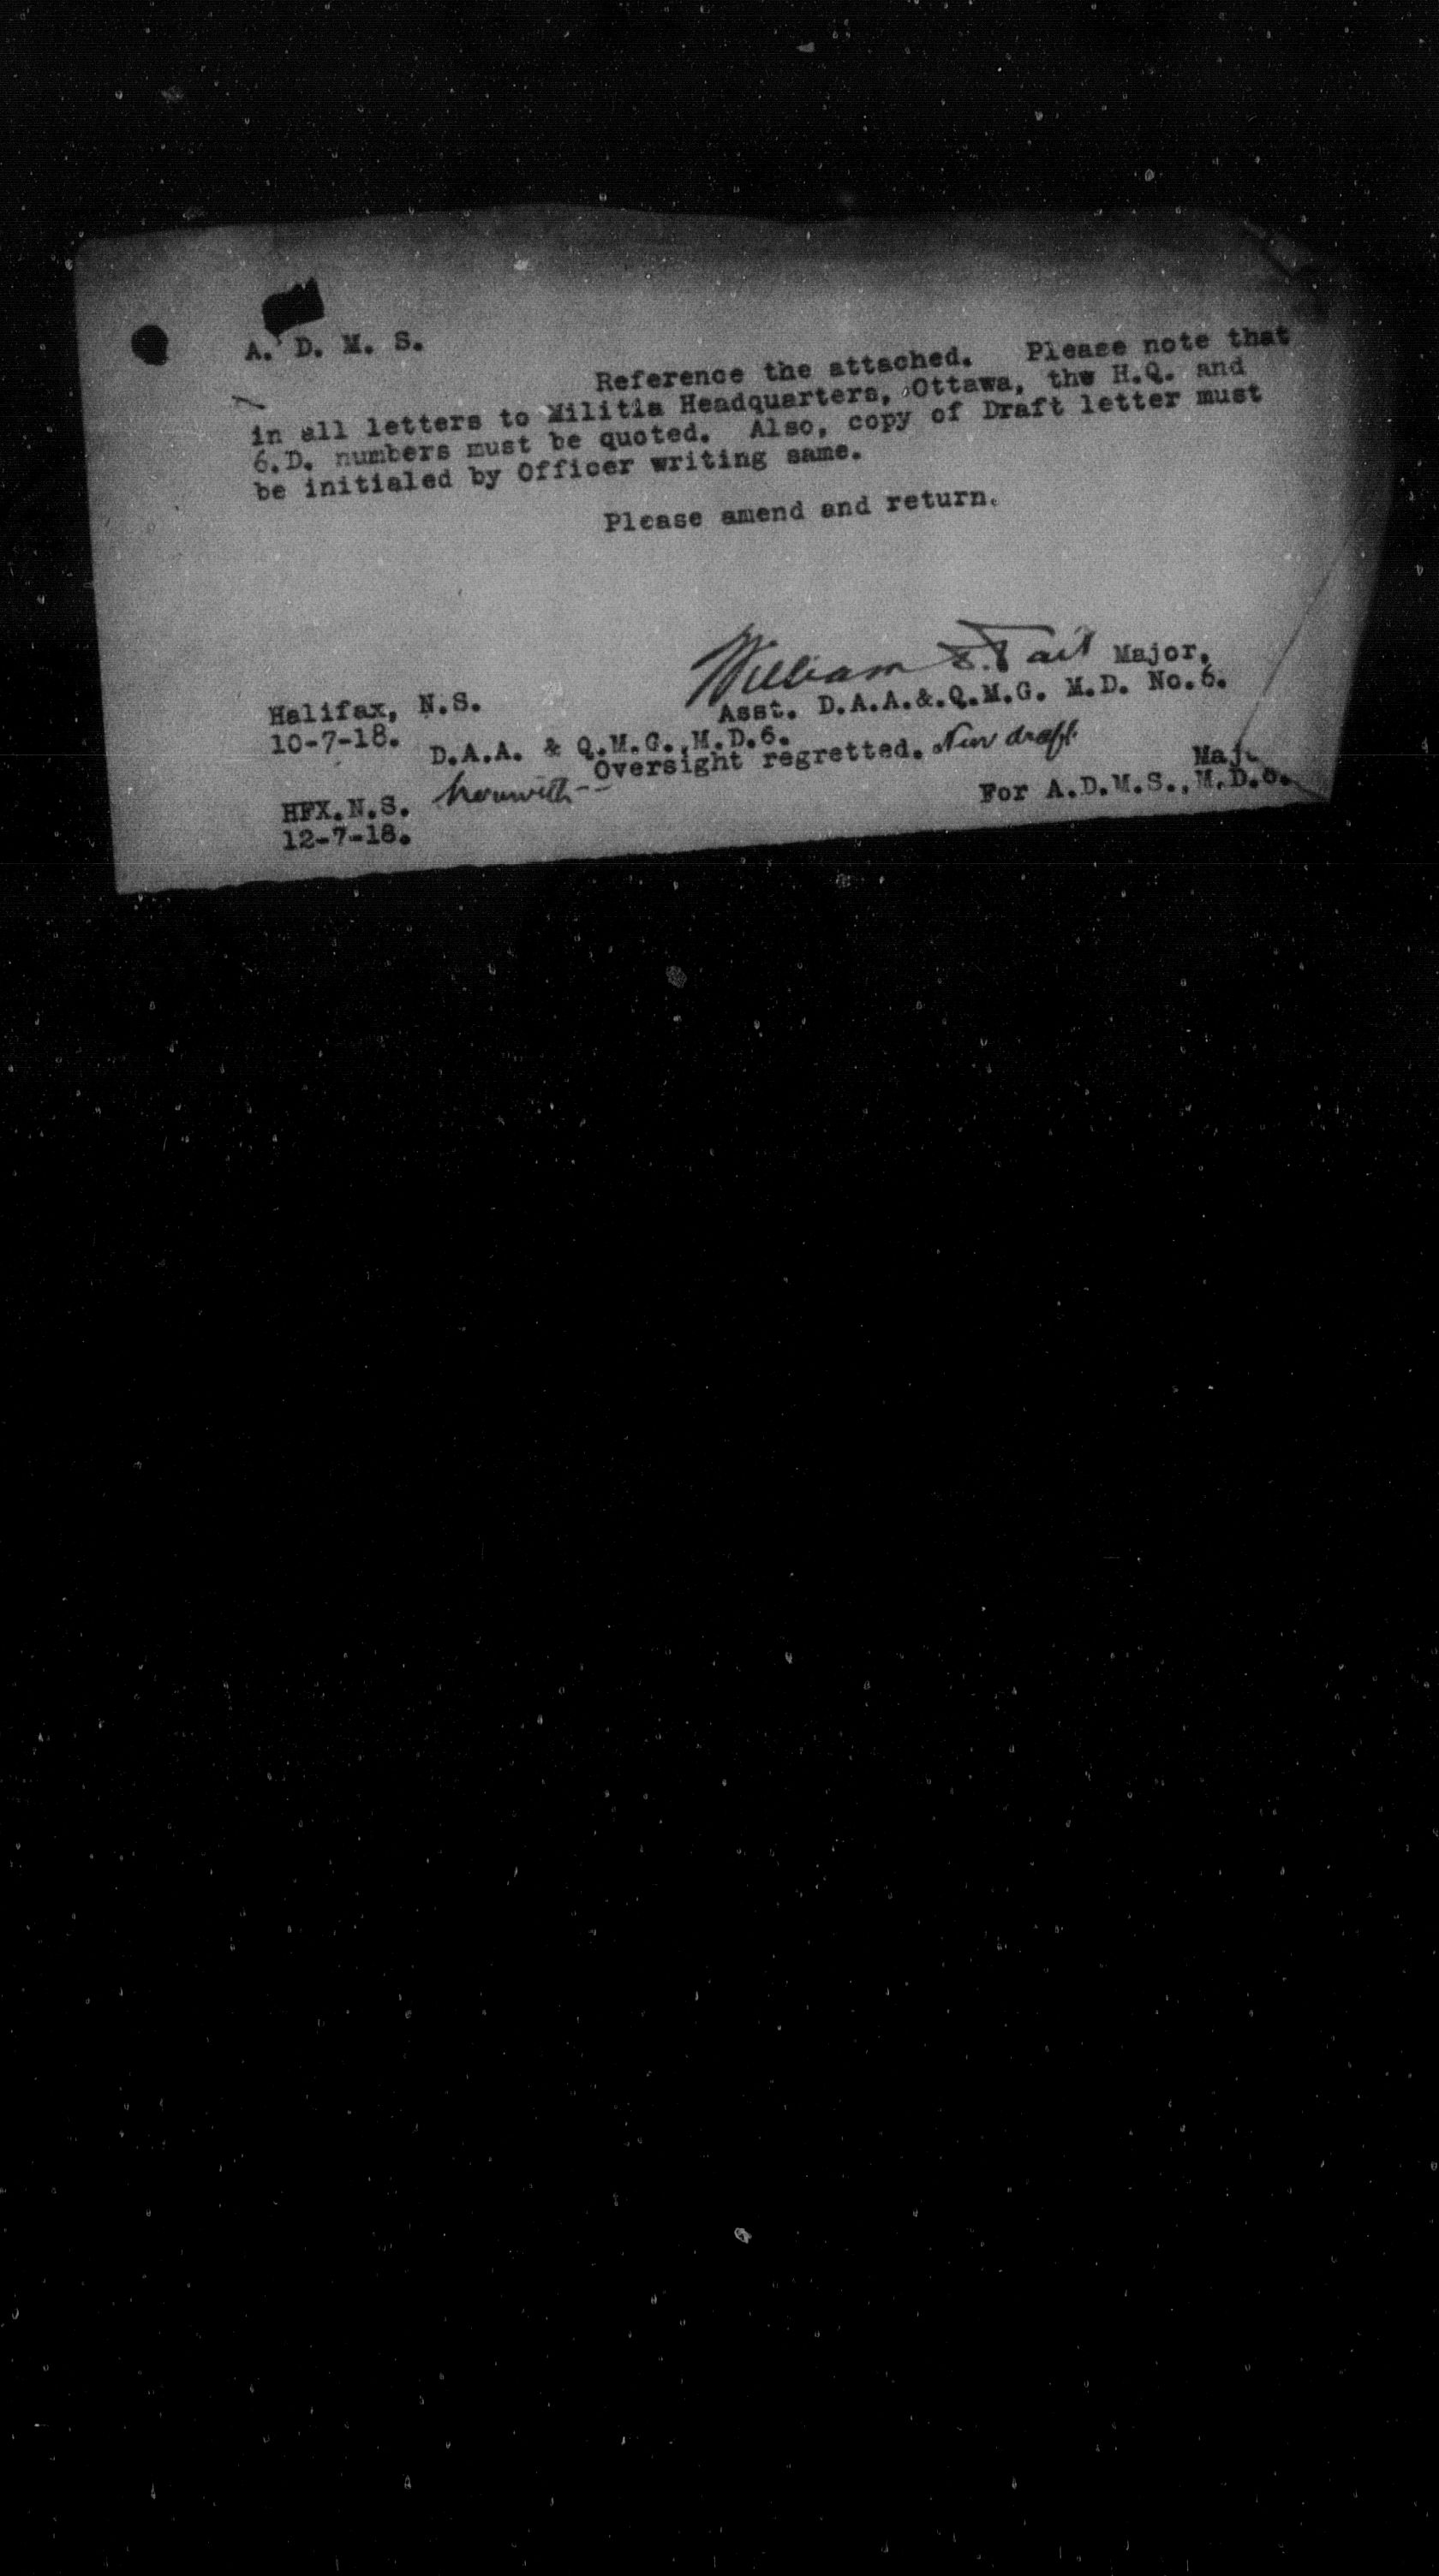 A. D. M. S.
Reference the attached. Please note that
in all letters to Militia Headquarters, Ottawa, thw H.Q. and
6.D. numbers must be quoted. Also, copy of Draft letter must
be initialed by Officer writing same.
Please amend and return.
William S. Tait Major,
Halifax, N.S. Asst. D.A.A.&.Q.M.G. M.D. No.6.
10-7-18.
D.A.A. & Q.M.G.,M.D.6.
Oversight regretted. New draft
herewith--
Maj
HFX.N.S. For A.D.M.S.,M.D.6.
12-7-18.